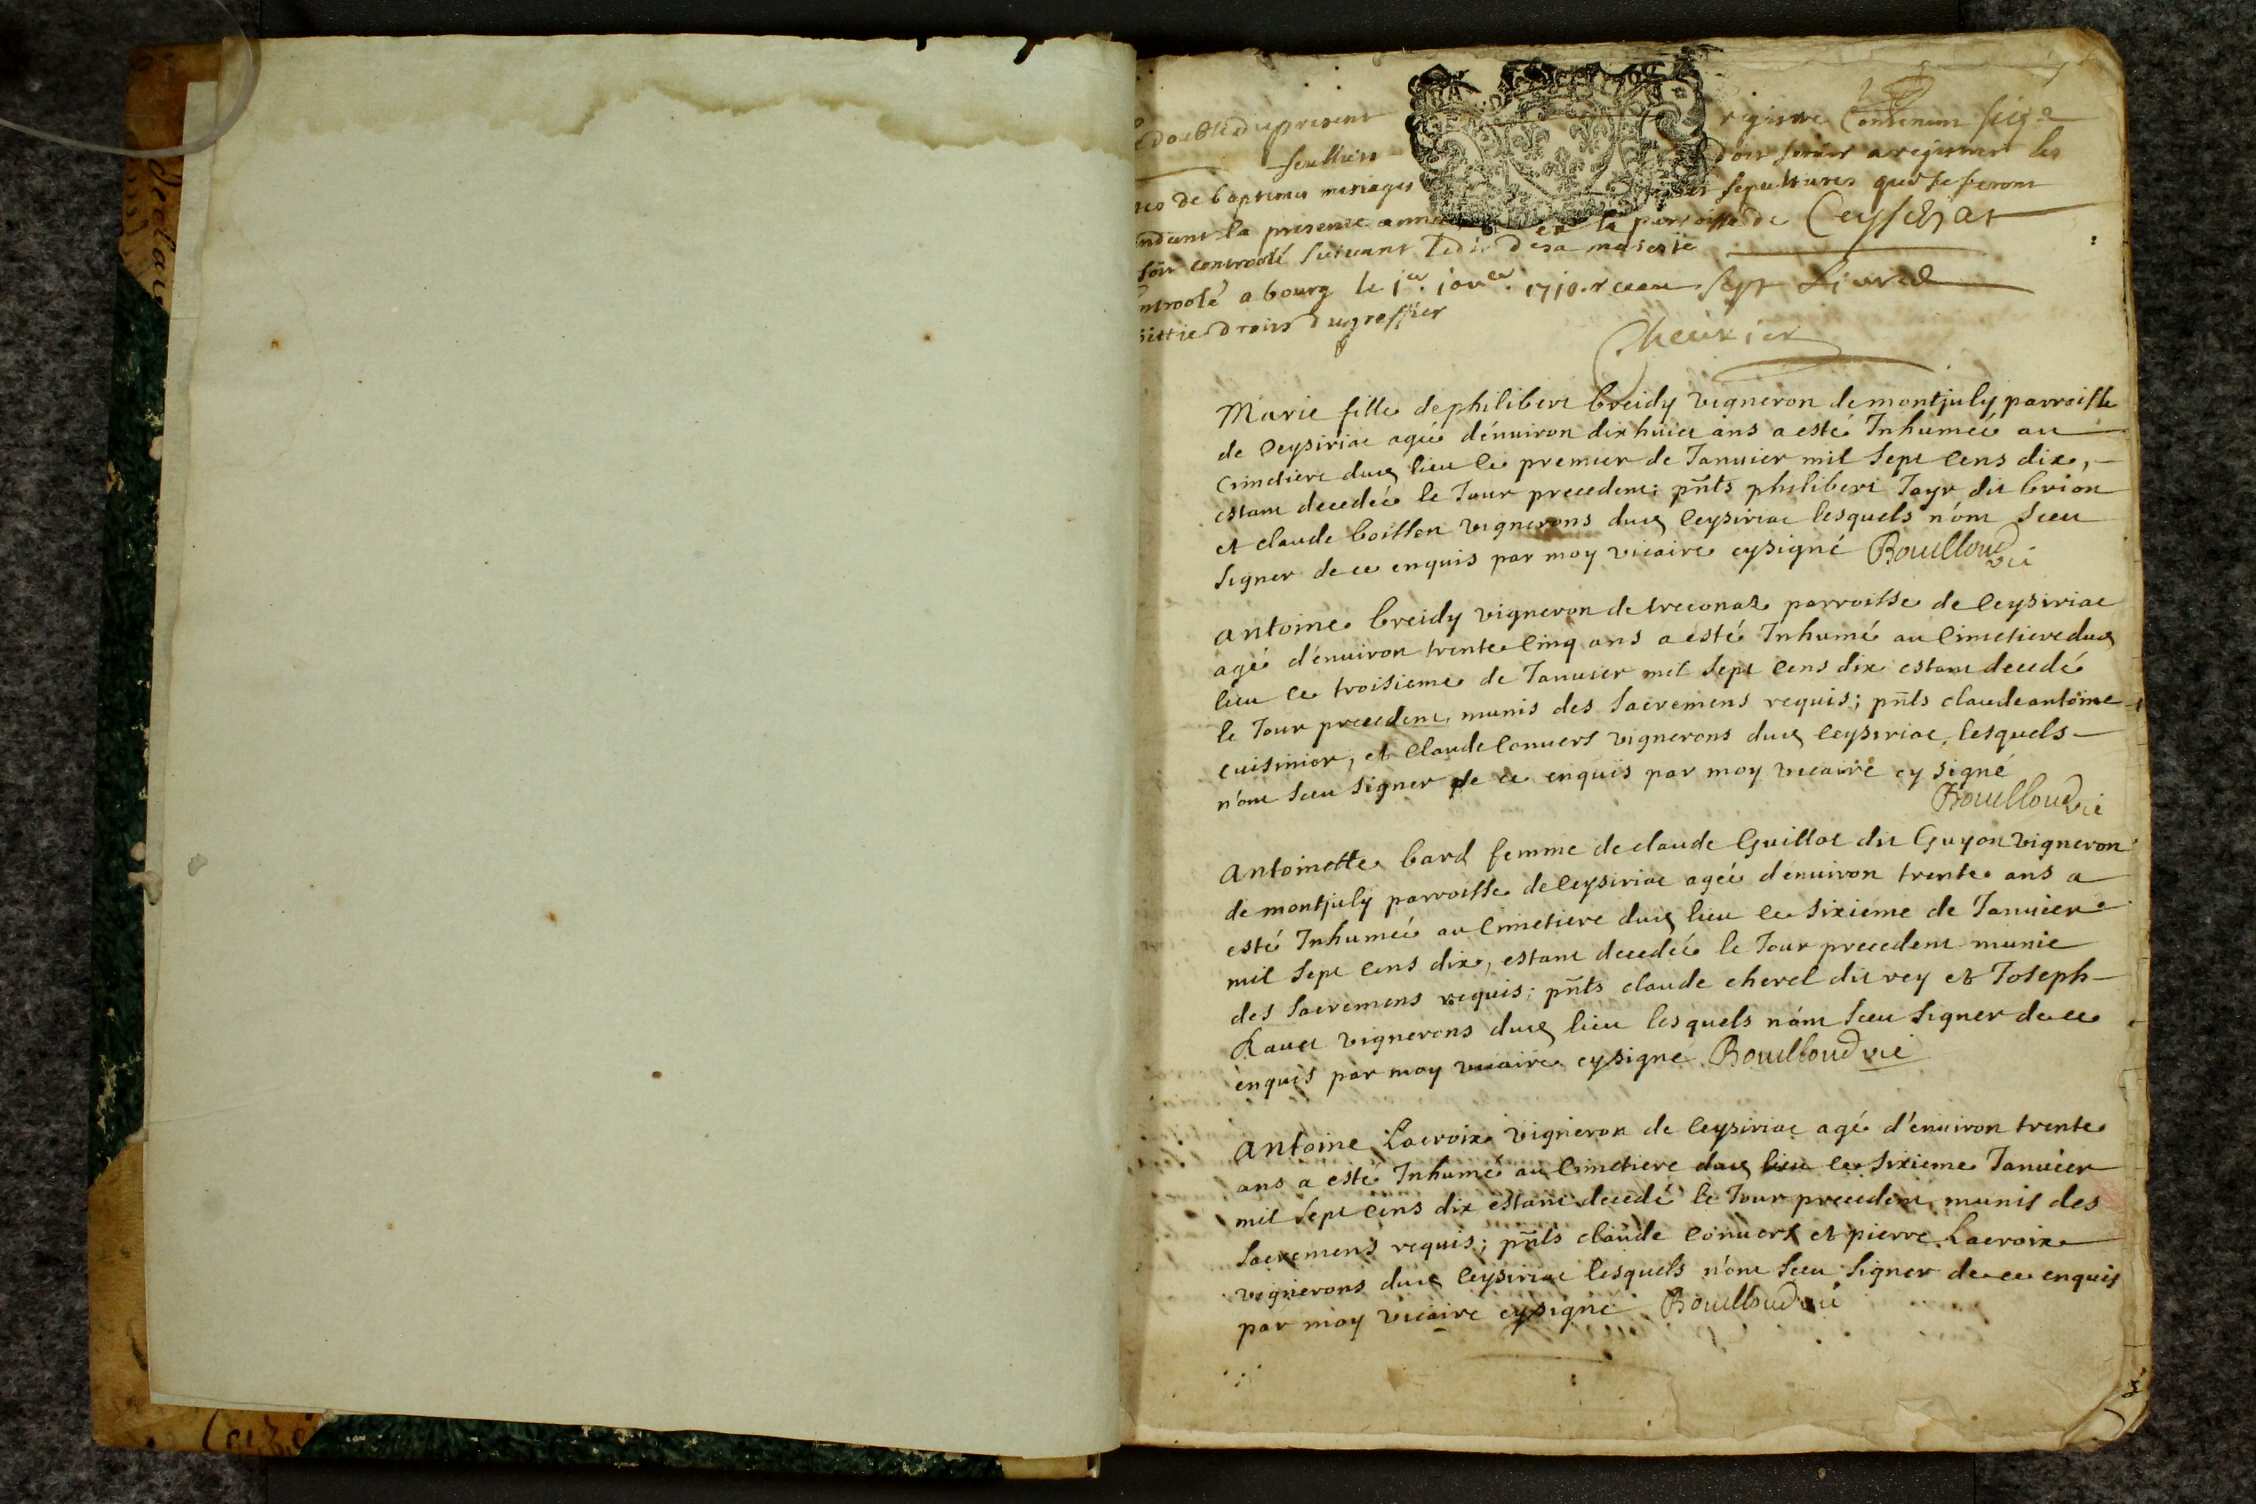 double du present registre Contenant seize
feuillets doit servir a registrer les
de baptemes mariages et sepultures qui se feront
la presente annee en la parroisse de Ceysseriat
controolé suivant ledit de sa majesté
controolé a bourg le 1er janer 1710. receu sept livres
droits du greffier
Cheurier
Marie fille de philibert breidy vigneron de montjuly parroisse
de Ceysiriac agée dénuiron dix huict ans a esté Inhumée au
Cimetiere dud lieu le premier de Januier mil sept cens dix,
estant decedée le Jour precedent; pñts philibert Jayr dit brion
et claude boisson vignerons dud Ceysiriac lesquels nónt sceu
signer de ce enquis par moy vicaire cysigné Bouilloud vic
antoine breidy vigneron de treconaz parroisse de Ceysiriac
agé d'énuiron trente Cinq ans a esté Inhumé au Cimetiere dud
lieu le troisieme de Januier mil sept cens dix estant decedé
le Jour precedent, munis des sacremens requis; pñts claude antoine
cuisinier, et Claude Conuers vignerons dud Ceysiriac, lesquels
nónt sceu signer de ce enquis par moy vicaire cy signé
Bouilloud vic
antoinette bard femme de claude Guillot dit Guyon vigneron
de montjuly parroisse de Ceysiriac agée dénuiron trente ans a
esté Inhumée au Cimetiere dud lieu le sixieme de Januier
mil sept cens dix, estant decedée le Jour precedent munie
des sacremens requis; pñts claude cherel dit rey et Joseph
Rauet vignerons dud lieu lesquels nónt sceu signer de ce
enquis par moy vicaire cysigné Bouilloud vic
antoine Lacroix vigneron de Ceysiriac agé d'énuiron trente
ans a esté Inhumé au Cimetiere dud lieu le sixieme Januier
mil sept cens dix estant decedé le Jour precedent munis des
sacremens requis; pñts claude Conuers et pierre Lacroix
vignerons dud Ceysiriac lesquels n'ónt sceu signer de ce enquis
par moy vicaire cysigné Bouilloud vic